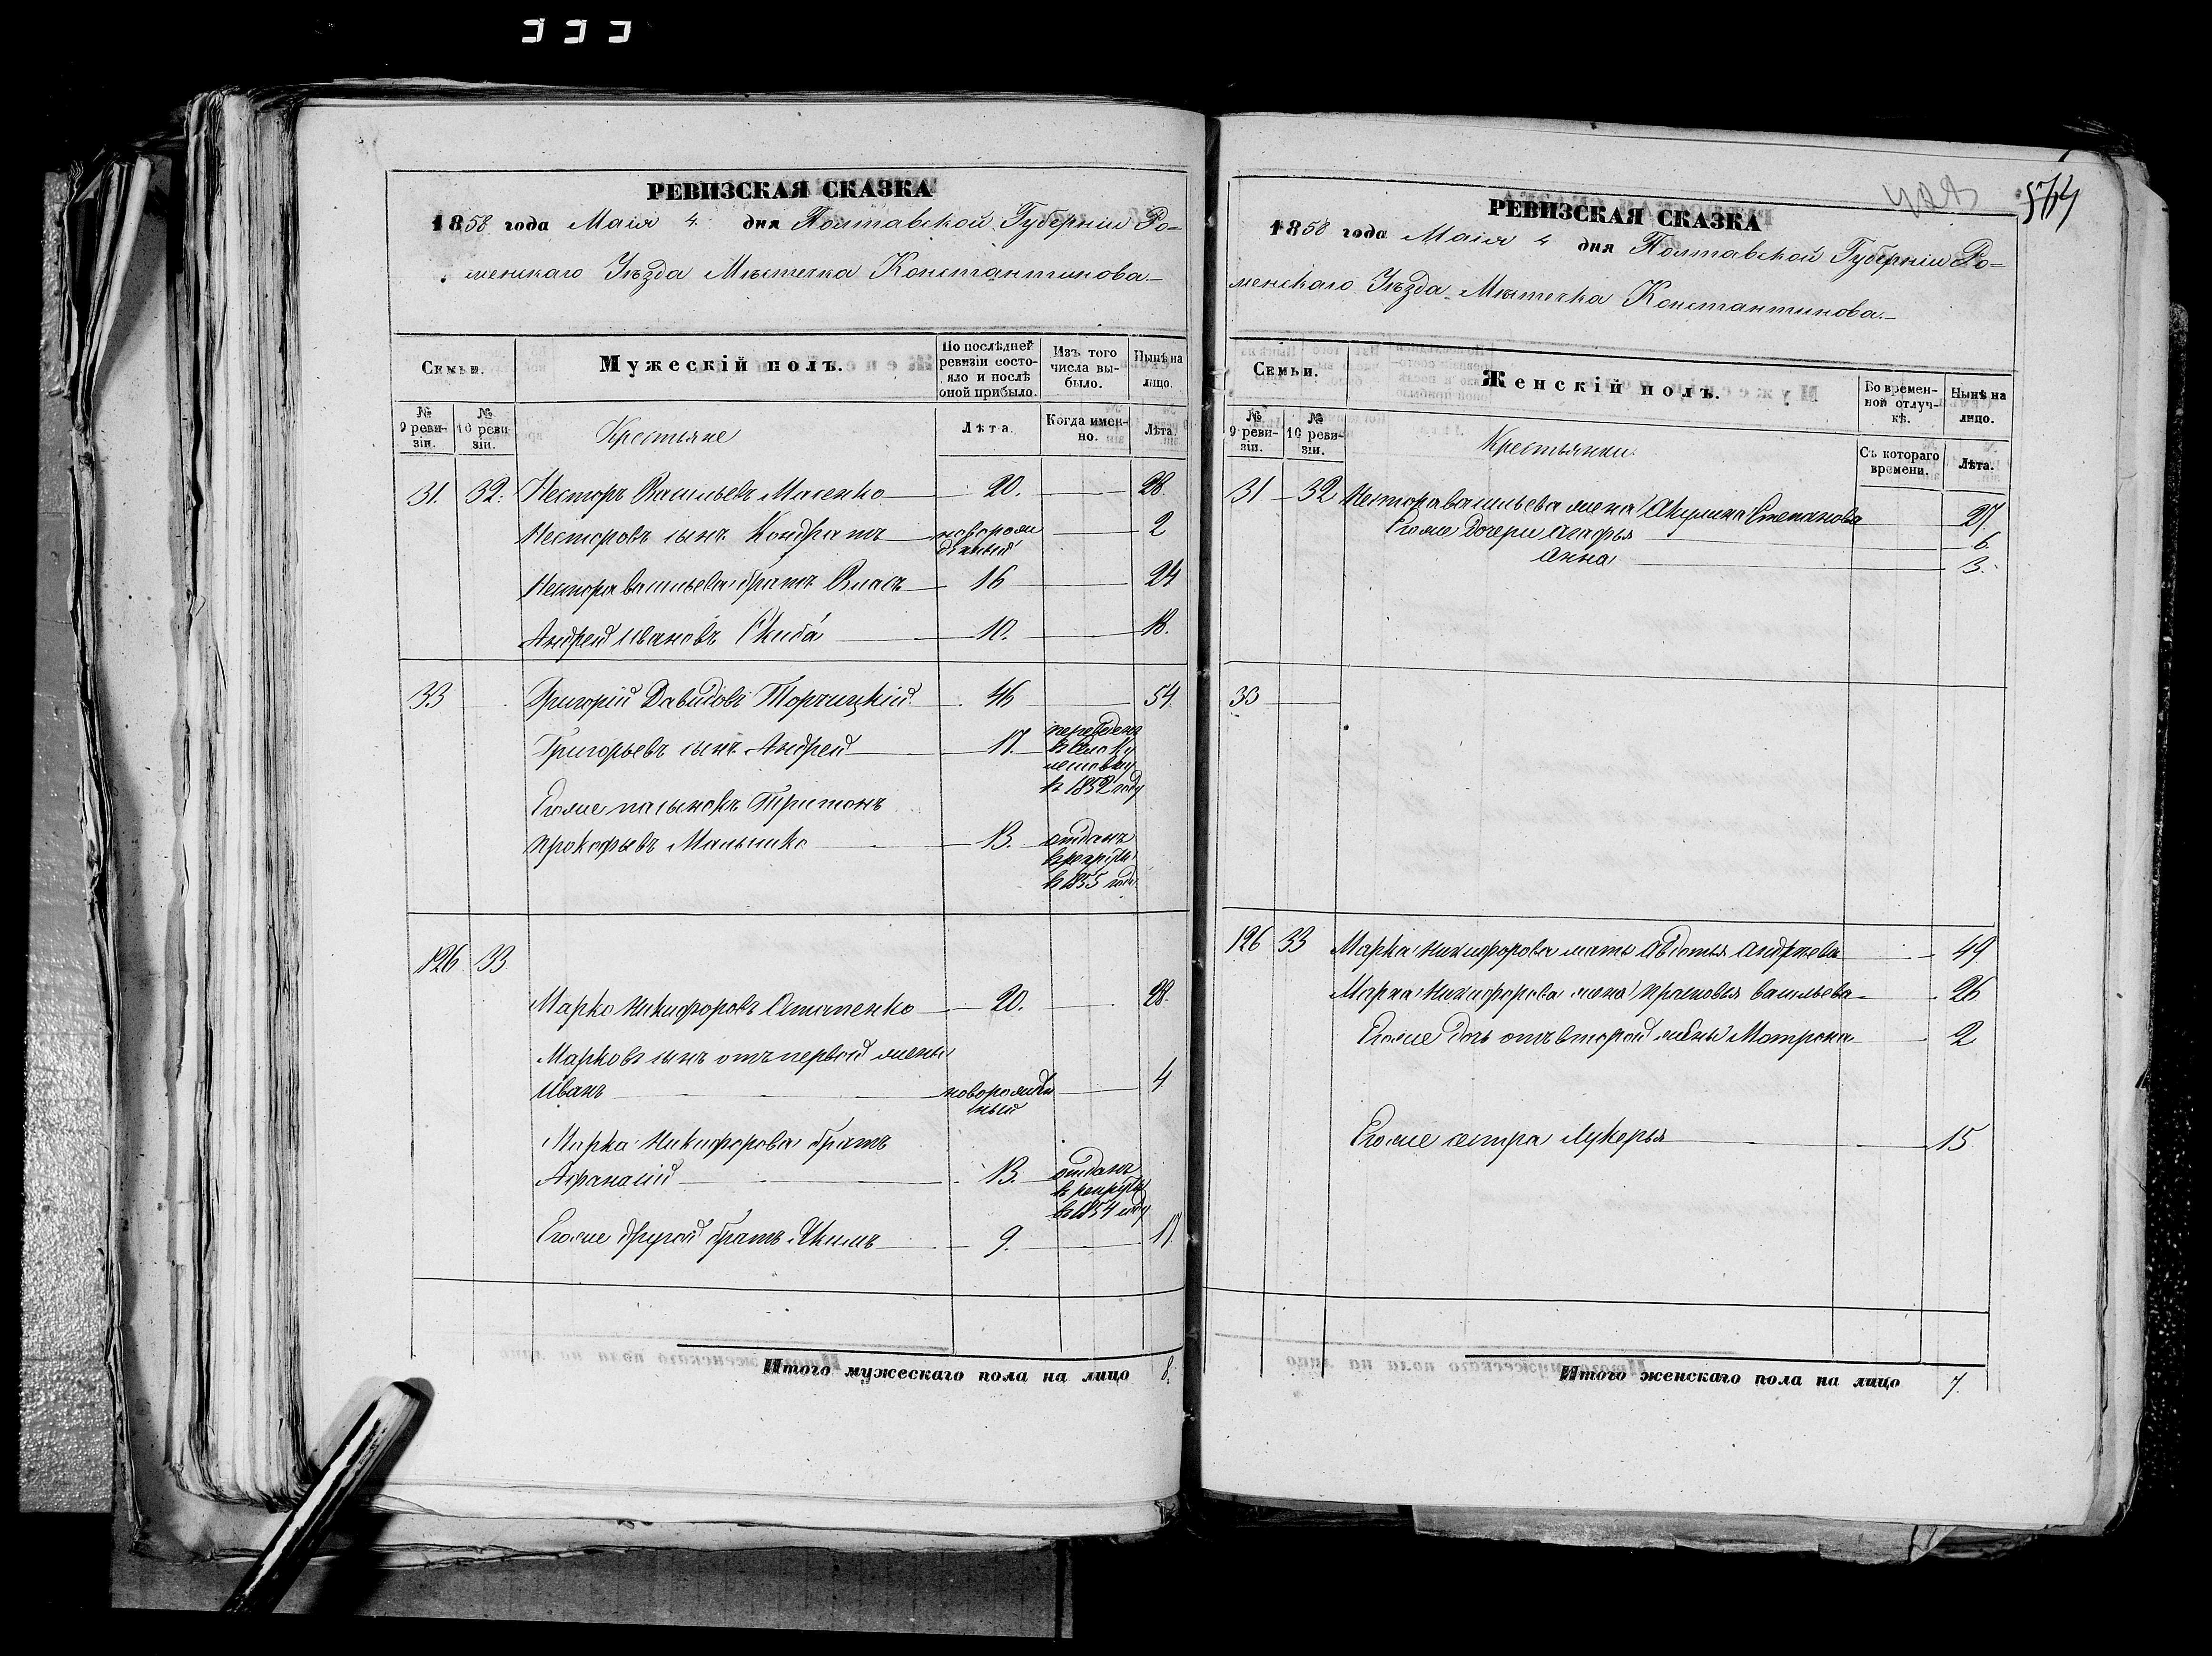 РЕВИЗСКАЯ СКАЗКА
1858 года Маія 4 дня Полтавской Губерніи Ро-
менскаго Уѣзда Мѣстечка Константинова.
Семьи.
Мужескій полъ.
По послѣдней ревизіи состо-
яло и послѣ оной прибыло.
Изъ того числа вы-
было.
Нынѣ на лицо.
№ 9 реви-
зіи.
№ 10 реви-
зіи.
Крестьяне
Лѣта.
Когда имен-
но.
Лѣта.
31. 32. Несторъ Васильевъ Масенко 20. 28.
Несторовъ сынъ Кондратъ новорож
денный 2
Нестора Васильева братъ Власъ 16 24
Андрей Ивановъ Скиба 10. 18.
33 Григорій Давидовъ Торчицкій 46 54.
Григорьевъ сынъ Андрей 17. переведенъ
въ село
въ 1852 году
Егоже пасынокъ Тритонъ
Прокофьевъ Малышко 13. отданъ
в рекруты
в 1855 году
126. 33.
Марко Никифоровъ Остапенко 20. 28.
Марковъ сынъ отъ первой жены
Иванъ новорожден
ный 4
Марка Никифорова братъ
Афанасій 13. отданъ
в рекруты
в 1854 году
Егоже другой братъ Якимъ 9. 17.
Итого мужескаго пола на лицо 8.
564
РЕВИЗСКАЯ СКАЗКА
1858 года Маія 4 дня Полтавской Губерніи Ро-
менскаго Уѣзда Мѣстечка Константинова.
Семьи.
Женскій полъ.
Во времен-
ной отлуч-
кѣ.
Нынѣ на лицо.
№ 9 реви-
зіи.
№ 10 реви-
зіи.
Крестьянки.
Съ котораго времени.
Лѣта.
31 32 Нестора Васильева жена Акулина Степанова 27.
Егоже Дочери Агафья 6.
Анна 3.
33
126 33 Марка Никифорова мать Авдотья Андреева 49
Марка Никифорова жена Прасковья Васильева 26
Егоже дочь отъ второй жены Матрона 2
Егоже сестра Лукерья 15
Итого женскаго пола на лицо 7.